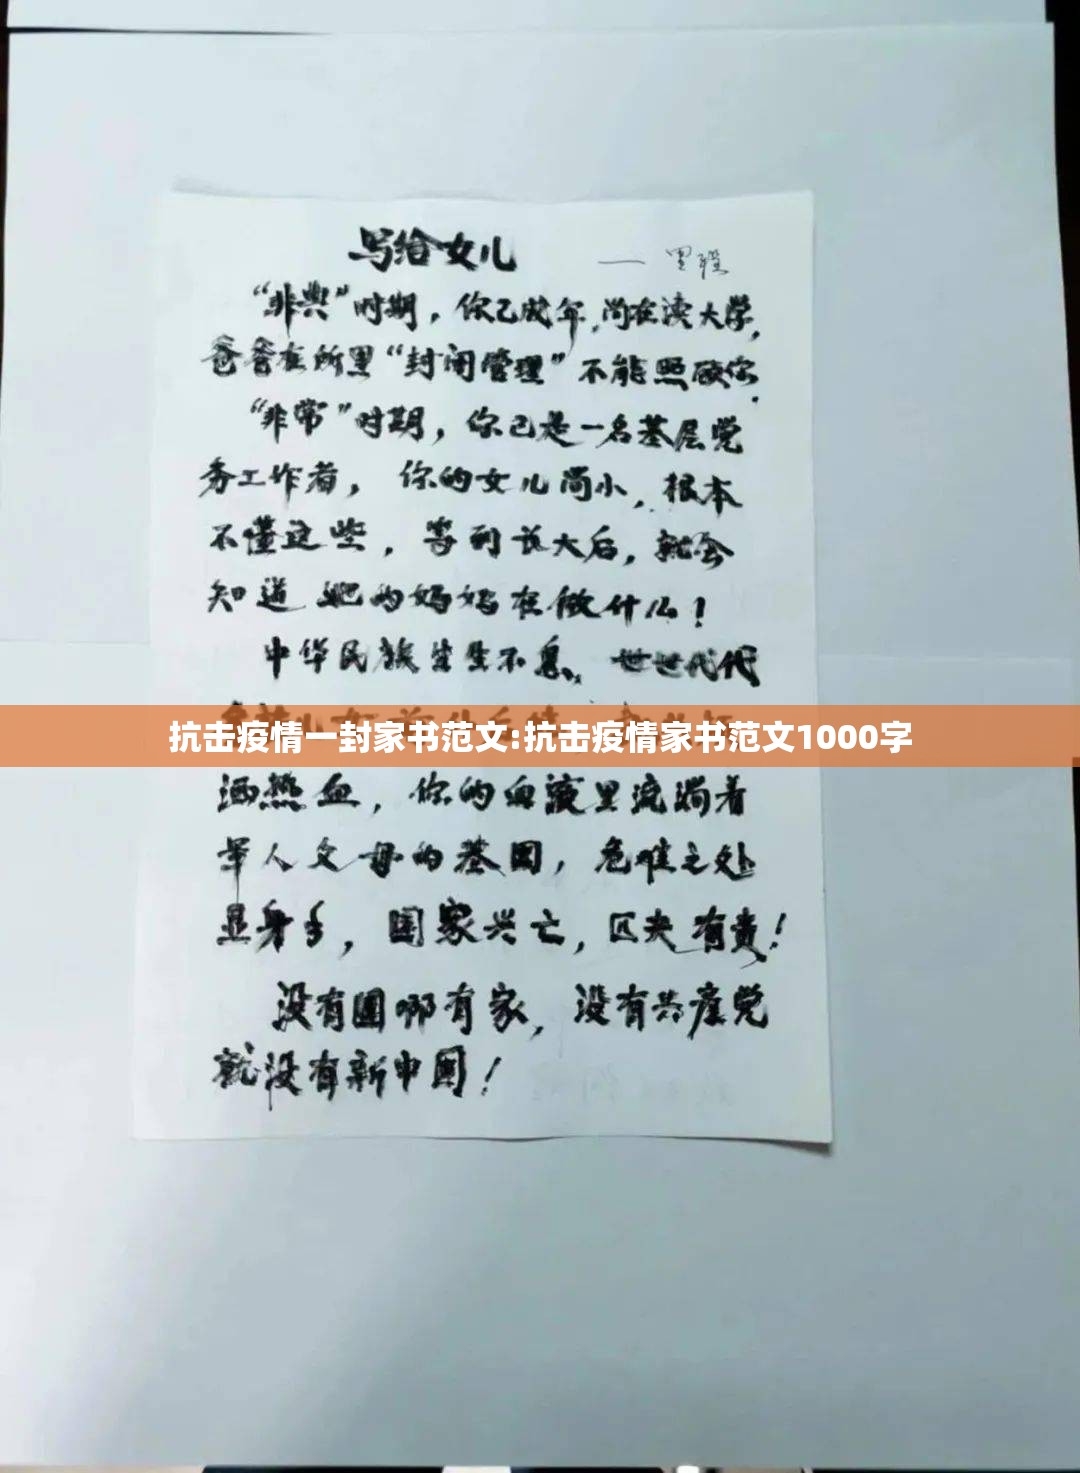 写给女儿 ——
“非典”时期，你已成年，尚在读大学，
爸爸在所里“封闭管理”不能照顾你．
“非常”时期，你已是一名基层党
务工作者，你的女儿尚小，根本
不懂这些，等到长大后，就会
知道她的妈妈在做什么！
中华民族生生不息、世世代代
抗击疫情一封家书范文:抗击疫情家书范文1000字
洒热血，你的血液里流淌着
军人父母的基因，危难之处
显身手，国家兴亡，匹夫有责！
没有国哪有家，没有共产党
就没有新中国！